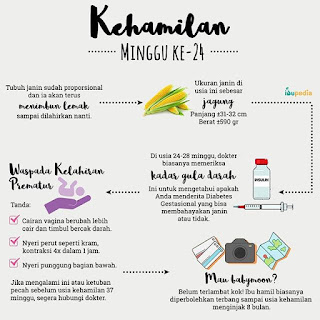 Kehamilan
MINGGU KE-24
Tubuh janin sudah proporsional
dan ia akan terus
menimbun lemak
sampai dilahirkan nanti.
Ukuran janin di
usia ini sebesar
jagung
Panjang ±31-32 cm
Berat ±590 gr
ibupedia
Di usia 24-28 minggu, dokter
biasanya memeriksa
kadar gula darah
Ini untuk mengetahui apakah
Anda menderita Diabetes
Gestasional yang bisa
membahayakan janin
atau tidak.
INSULIN
Waspada Kelahiran
Prematur
Tanda:
Cairan vagina berubah lebih
cair dan timbul bercak darah.
Nyeri perut seperti kram,
kontraksi 4x dalam 1 jam.
Nyeri punggung bagian bawah.
Jika mengalami ini atau ketuban
pecah sebelum usia kehamilan 37
minggu, segera hubungi dokter.
Mau babymoon?
Belum terlambat kok! Ibu hamil biasanya
diperbolehkan terbang sampai usia kehamilan
menginjak 8 bulan.